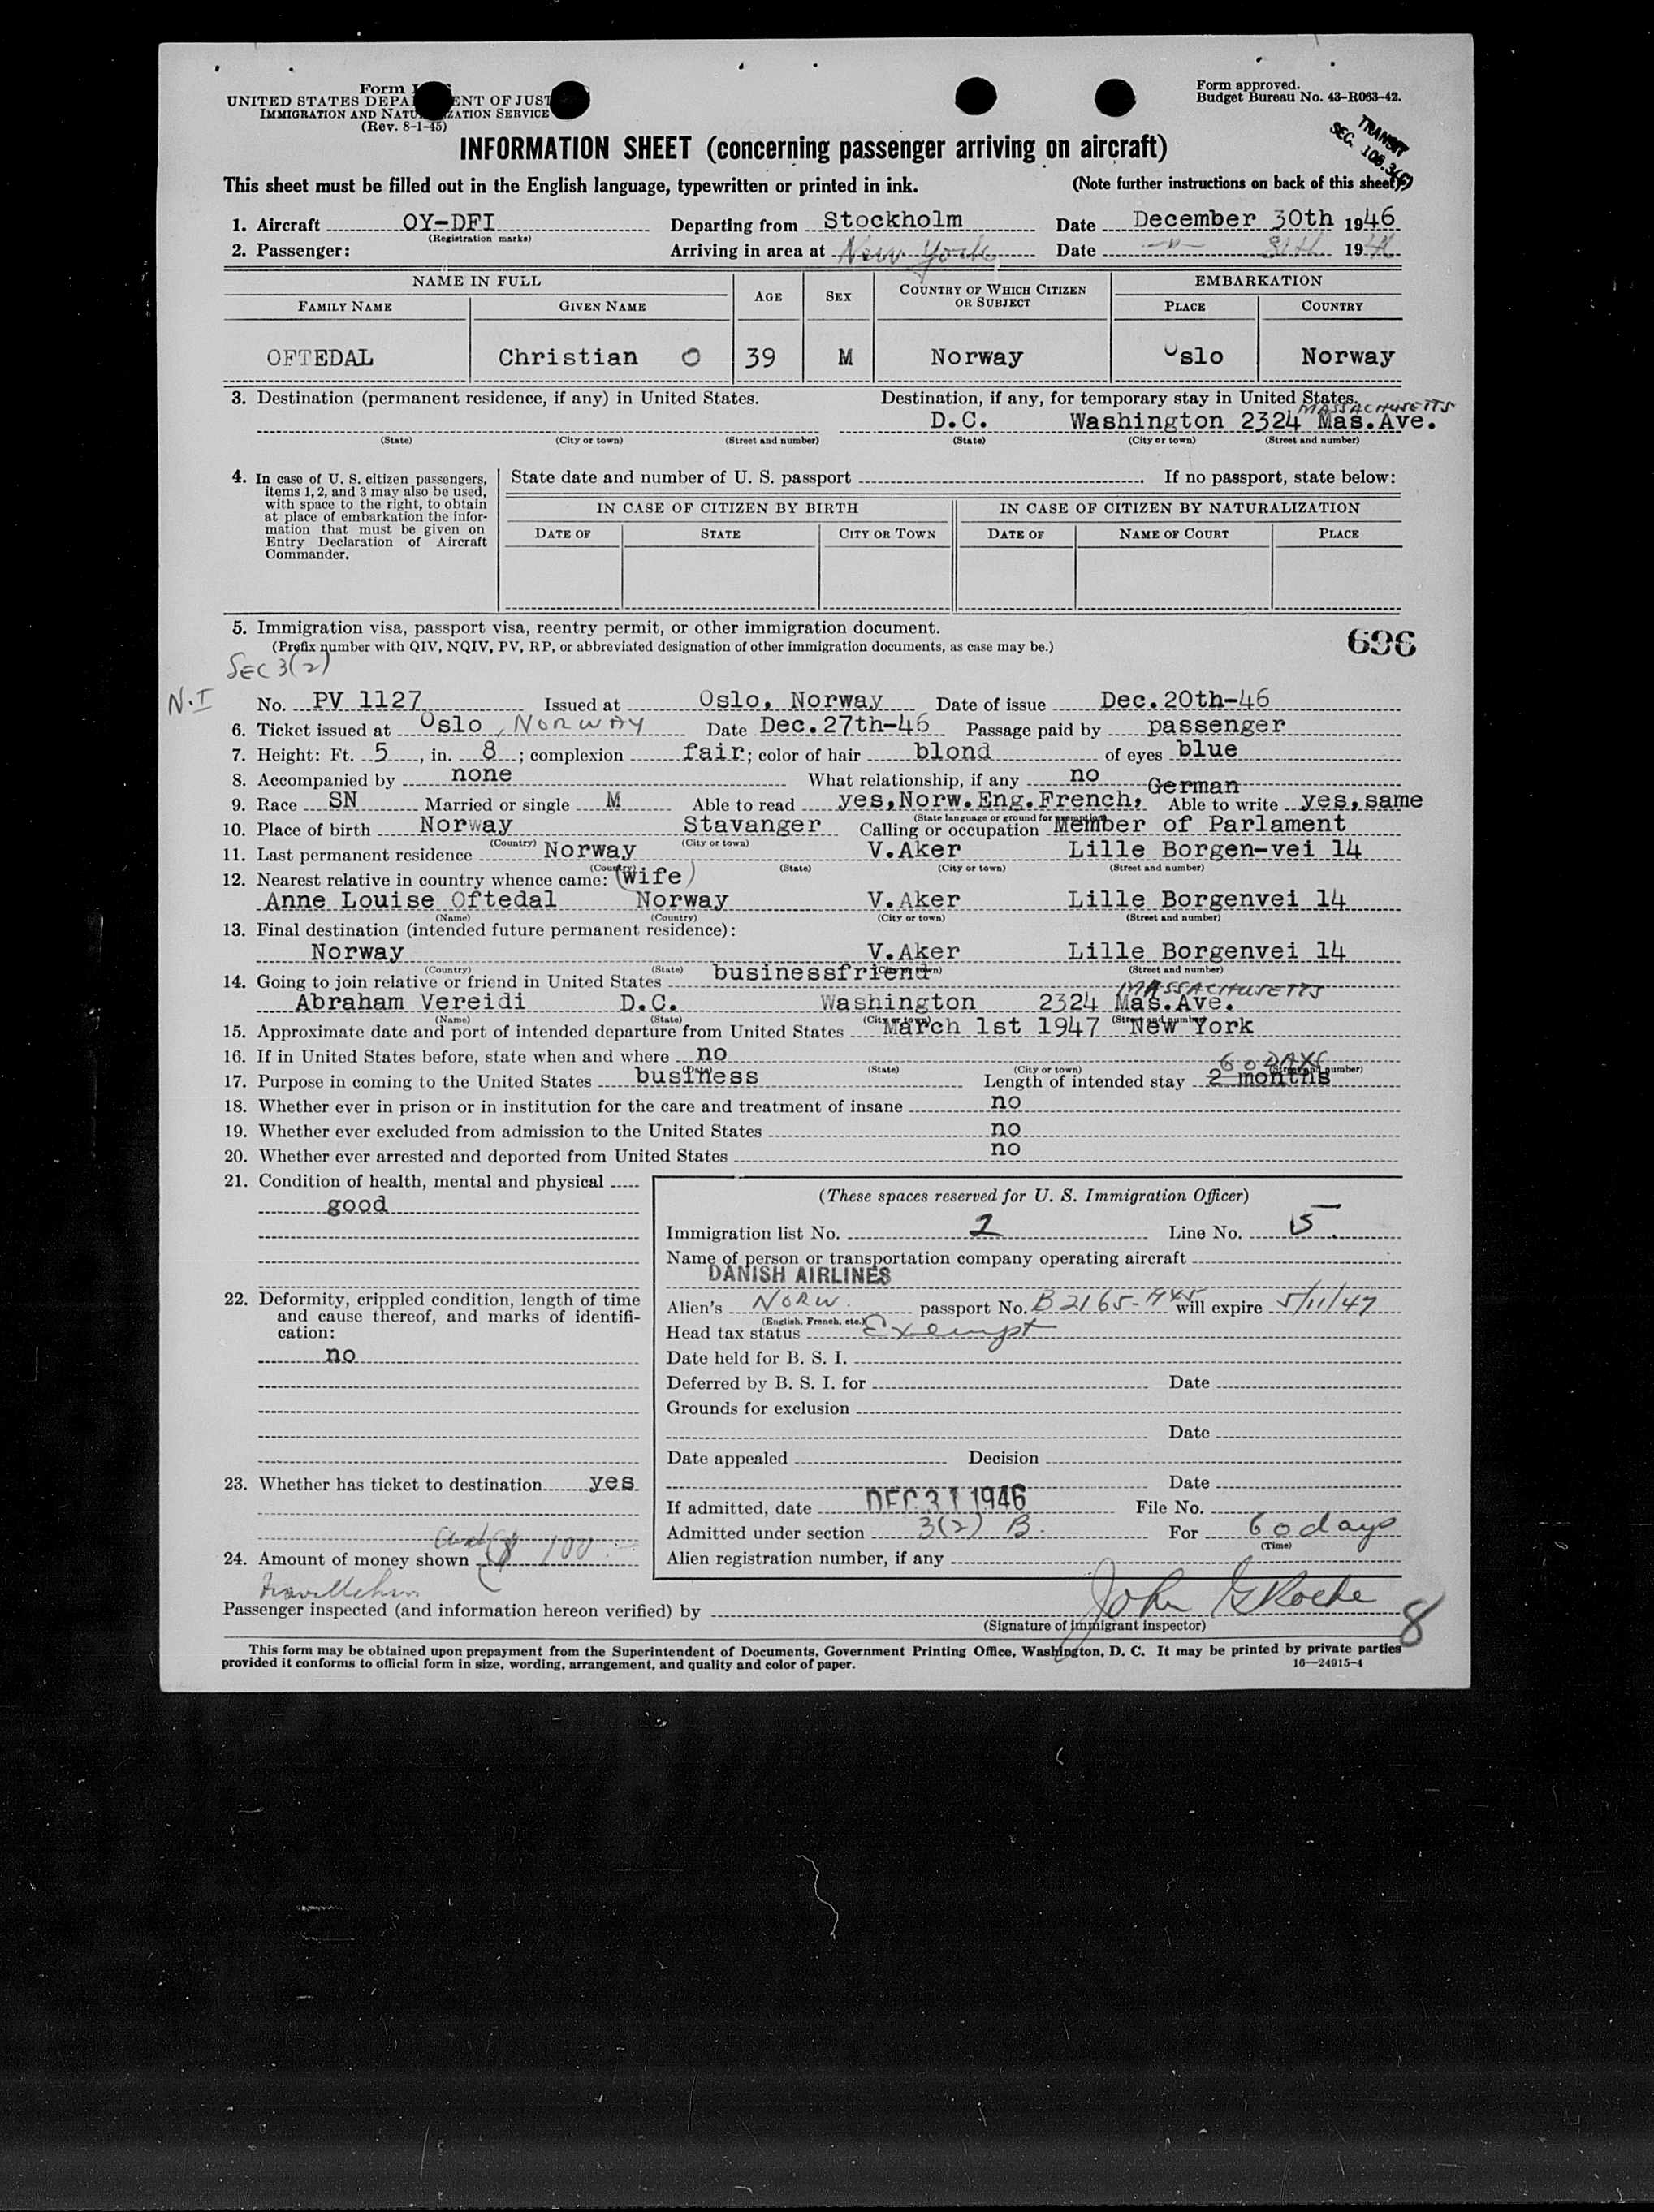 Form
UNITED STATES DEPA ENT OF JUST
IMMIGRATION AND NATU ZATION SERVICE
(Rev. 8-1-45)
Form approved.
Budget Bureau No. 43-R063-42.
TRANSIT
SEC. 106.3(f)
INFORMATION SHEET (concerning passenger arriving on aircraft)
This sheet must be filled out in the English language, typewritten or printed in ink. (Note further instructions on back of this sheet)
1. Aircraft OY-DFI Departing from Stockholm Date December 30th 1946
(Registration marks)
2. Passenger: Arriving in area at New York Date —"— 31th 1946
NAME IN FULL AGE SEX COUNTRY OF WHICH CITIZEN OR SUBJECT EMBARKATION
FAMILY NAME GIVEN NAME PLACE COUNTRY
OFTEDAL Christian O 39 M Norway Oslo Norway
3. Destination (permanent residence, if any) in United States. Destination, if any, for temporary stay in United States.
MASSACHUSETTS
D.C. Washington 2324 Mas.Ave.
(State) (City or town) (Street and number) (State) (City or town) (Street and number)
4. In case of U. S. citizen passengers, items 1, 2, and 3 may also be used, with space to the right, to obtain at place of embarkation the information that must be given on Entry Declaration of Aircraft Commander.
State date and number of U. S. passport . If no passport, state below:
IN CASE OF CITIZEN BY BIRTH IN CASE OF CITIZEN BY NATURALIZATION
DATE OF STATE CITY OR TOWN DATE OF NAME OF COURT PLACE
5. Immigration visa, passport visa, reentry permit, or other immigration document.
(Prefix number with QIV, NQIV, PV, RP, or abbreviated designation of other immigration documents, as case may be.)
696
SEC 3(2)
N.I
No. PV 1127 Issued at Oslo, Norway Date of issue Dec.20th-46
6. Ticket issued at Oslo, NORWAY Date Dec.27th-46 Passage paid by passenger
7. Height: Ft. 5, in. 8; complexion fair; color of hair blond of eyes blue
8. Accompanied by none What relationship, if any no
German
9. Race SN Married or single M Able to read yes,Norw.Eng.French, Able to write yes,same
(State language or ground for exemption)
10. Place of birth Norway Stavanger Calling or occupation Member of Parlament
(Country) (City or town)
11. Last permanent residence Norway V.Aker Lille Borgen-vei 14
(Country) (State) (City or town) (Street and number)
12. Nearest relative in country whence came: (Wife)
Anne Louise Oftedal Norway V.Aker Lille Borgenvei 14
(Name) (Country) (City or town) (Street and number)
13. Final destination (intended future permanent residence):
Norway V.Aker Lille Borgenvei 14
(Country) (State) (City or town) (Street and number)
14. Going to join relative or friend in United States businessfriend
MASSACHUSETTS
Abraham Vereidi D.C. Washington 2324 Mas.Ave.
(Name) (State) (City or town) (Street and number)
15. Approximate date and port of intended departure from United States March 1st 1947 New York
16. If in United States before, state when and where no
(Date) (State) (City or town) (Street and number)
60 DAYS
17. Purpose in coming to the United States business Length of intended stay 2 months
18. Whether ever in prison or in institution for the care and treatment of insane no
19. Whether ever excluded from admission to the United States no
20. Whether ever arrested and deported from United States no
21. Condition of health, mental and physical
good
22. Deformity, crippled condition, length of time and cause thereof, and marks of identification:
no
23. Whether has ticket to destination yes
and
24. Amount of money shown $ 100
Passenger inspected (and information hereon verified) by John G Roche
(Signature of immigrant inspector)
8
(These spaces reserved for U. S. Immigration Officer)
Immigration list No. 2 Line No. 5
Name of person or transportation company operating aircraft
DANISH AIRLINES
Alien's NORW. passport No. B2165-1945 will expire 5/11/47
(English, French, etc.)
Head tax status Exempt
Date held for B. S. I.
Deferred by B. S. I. for Date
Grounds for exclusion
Date
Date appealed Decision
Date
If admitted, date DEC 31 1946 File No.
Admitted under section 3(2) B. For 60 days
(Time)
Alien registration number, if any
This form may be obtained upon prepayment from the Superintendent of Documents, Government Printing Office, Washington, D. C. It may be printed by private parties
provided it conforms to official form in size, wording, arrangement, and quality and color of paper. 16—24915-4